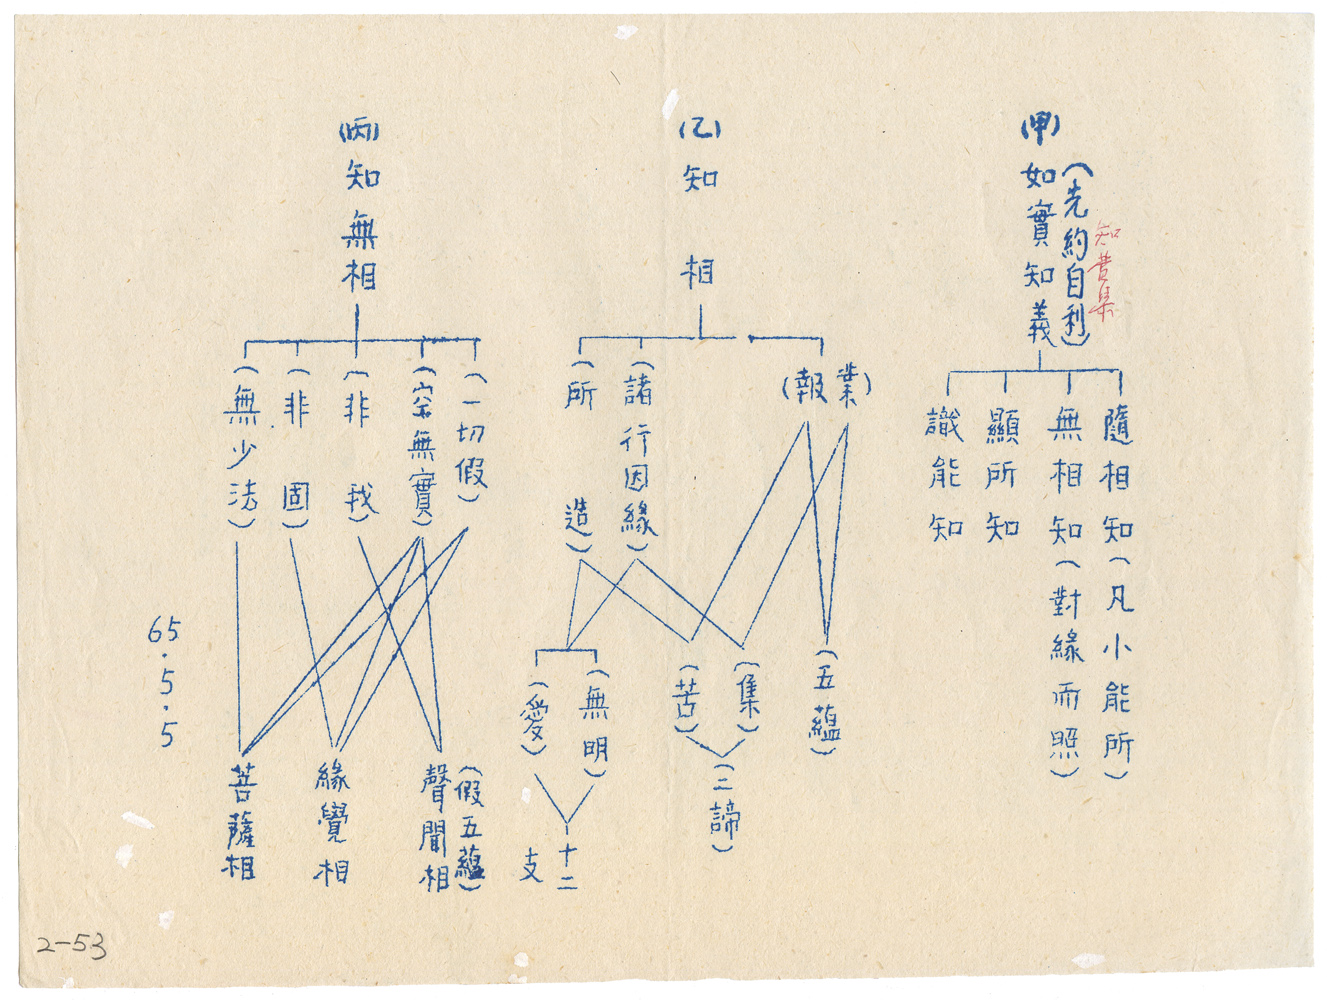 (甲)如實知義
(先約自利)
隨相知(凡小能所)
無相知(對緣而照)
顯所知
識能知
(乙)知相
(業
報)
(諸行因緣)
(所造)
(五蘊)
(集)
(苦)
(二諦)
(無明)
(愛)
十二
支
(丙)知無相
(一切假)
(空無實)
(非我)
(非固)
(無少法)
(假五蘊)
聲聞相
緣覺相
菩薩相
65.5.5
2-53